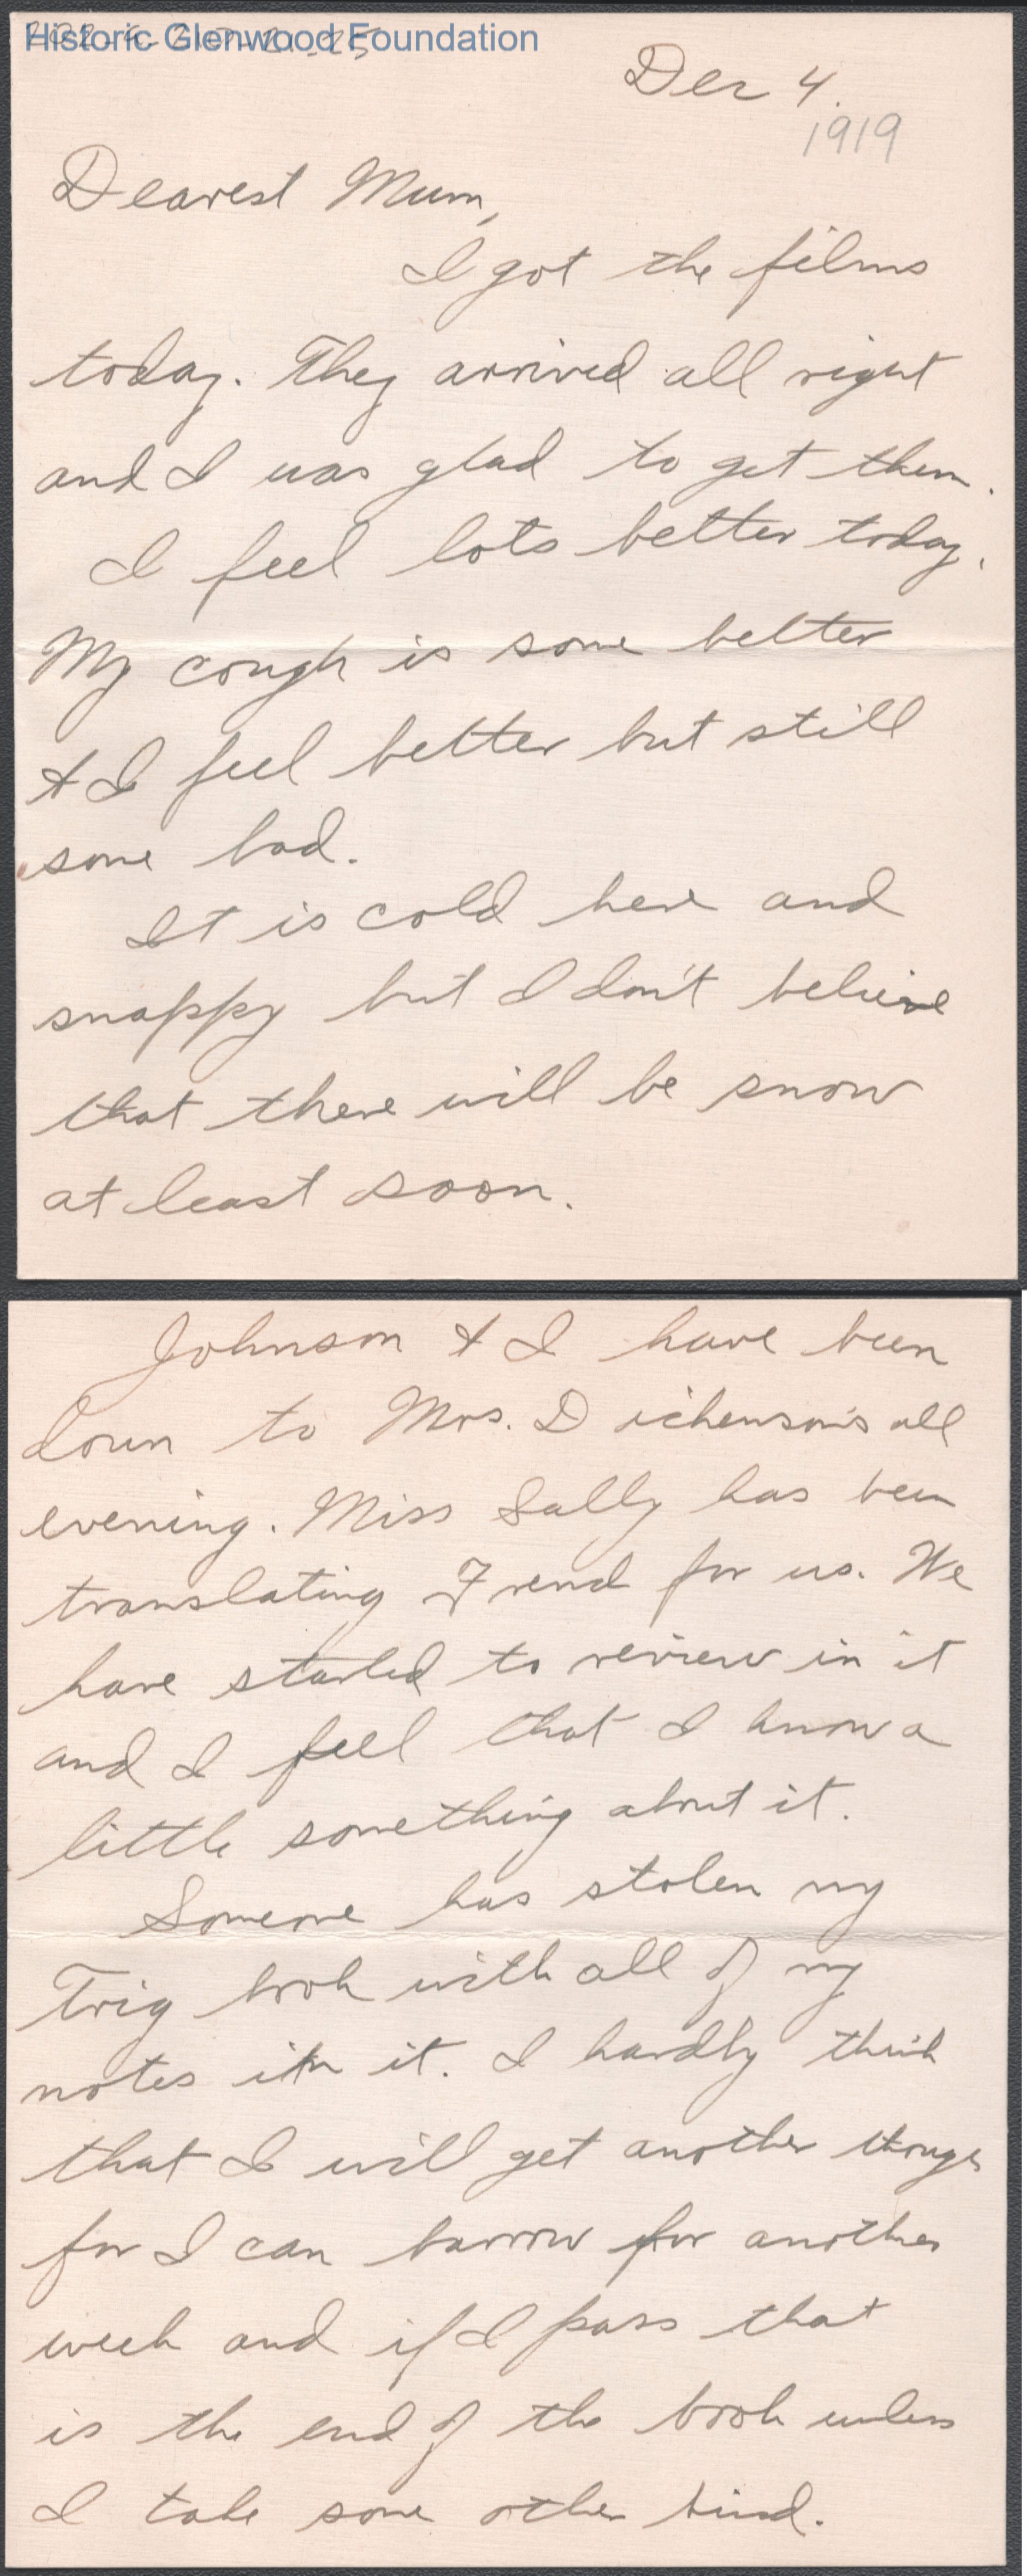 Historic Glenwood Foundation
Dec 4.
1919
Dearest Mum,
I got the films
today. They arrived all right
and I was glad to get them.
I feel lots better today.
My cough is some better
& I feel better but still
some bad.
It is cold here and
snappy but I don't believe
that there will be snow
at least soon.
Johnson & I have been
down to Mrs. Dickenson's all
evening. Miss Sally has been
translating Frend for us. We
have started to review in it
and I feel that I know a
little something about it.
Someone has stolen my
Trig book with all of my
notes in it. I hardly think
that I will get another though
for I can borrow for another
week and if I pass that
is the end of the book unless
I take some other kind.